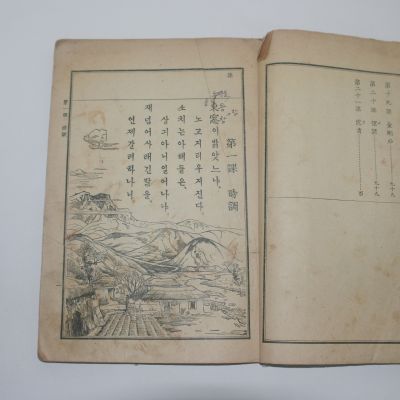 第十九課
第二十課
九十九
第二十一課
第一課 時調
東窓이밝앗느냐,
노고지리우지진다.
소치는아해들은,
상긔아니일어나냐.
재넘어사래긴밧을,
언제갈려하나니.
第一課 時調